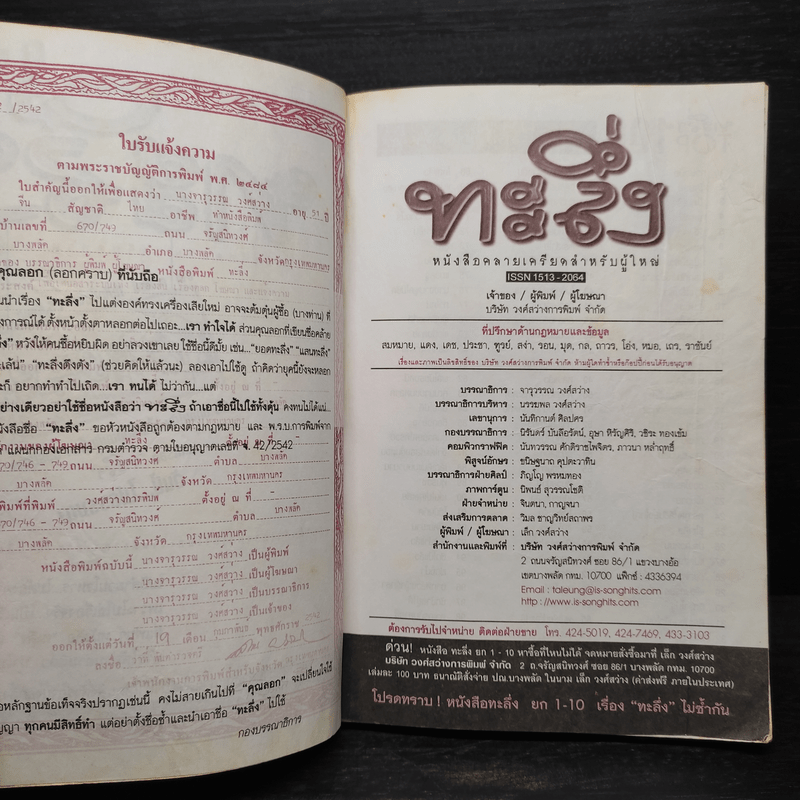 /2542
ใบรับแจ้งความ
ตามพระราชบัญญัติการพิมพ์ พ.ศ. ๒๔๘๔
ใบสำคัญนี้ออกให้เพื่อแสดงว่า นางจารุวรรณ วงศ์สว่าง อายุ 51 ปี
จีน สัญชาติ ไทย อาชีพ ทำหนังสือพิมพ์
บ้านเลขที่ 670/749 ถนน จรัญสนิทวงศ์
บางพลัด อำเภอ บางพลัด จังหวัดกรุงเทพมหานคร
ของ บรรณาธิการ ผู้พิมพ์ ผู้โฆษณา หนังสือพิมพ์ ทะลึ่ง
คุณลอก (ลอกคราบ) ที่นับถือ
นำเรื่อง “ทะลึ่ง” ไปแต่งองค์ทรงเครื่องเสียใหม่ อาจจะต้มตุ๋นผู้ซื้อ (บางท่าน) ที่
งการณ์ได้ ตั้งหน้าตั้งตาลอกต่อไปเถอะ...เรา ทำใจได้ ส่วนคุณลอกที่เขียนชื่อคล้าย
หวังให้คนซื้อหยิบผิด อย่างลวงเขาเลย ใช้ชื่อนี้ดีมั้ย เช่น...“ยอดทะลึ่ง” “แสนทะลึ่ง”
“ทะลึ่งตึงตัง” (ช่วยคิดให้แล้วนะ) ลองเอาไปใช้ดู ถ้าคิดว่ายุคนี้ยังจะหลอก
ะก็ อยากทำทำไปเถิด...เรา ทนได้ ไม่ว่ากัน...แต่
ย่างเดียวอย่าใช้ชื่อหนังสือว่า ทะลึ่ง ถ้าเอาชื่อนี้ไปใช้ทั้งดุ้น คงทนไม่ได้แน่...
นังสือชื่อ “ทะลึ่ง” ขอหัวหนังสือถูกต้องตามกฎหมาย และ พ.ร.บ.การพิมพ์จาก
แผนกกองเอกสาร กรมตำรวจ ตามใบอนุญาตเลขที่ จ. 42/2542
670/746 - 749 ถนน จรัญสนิทวงศ์ ตำบล บางพลัด
บางพลัด จังหวัด กรุงเทพมหานคร
พิมพ์ที่พิมพ์ วงศ์สว่างการพิมพ์ ตั้งอยู่ ณ ที่
670/746 - 749 ถนน จรัญสนิทวงศ์ ตำบล บางพลัด
บางพลัด จังหวัด กรุงเทพมหานคร
หนังสือพิมพ์ฉบับนี้ นางจารุวรรณ วงศ์สว่าง เป็นผู้พิมพ์
นางจารุวรรณ วงศ์สว่าง เป็นผู้โฆษณา
นางจารุวรรณ วงศ์สว่าง เป็นบรรณาธิการ
นางจารุวรรณ วงศ์สว่าง เป็นเจ้าของ
ออกให้ตั้งแต่วันที่ 19 เดือน กุมภาพันธ์ พุทธศักราช 2542
ลงชื่อ
อหลักฐานข้อเท็จจริงปรากฏเช่นนี้ คงไม่สายเกินไปที่ “คุณลอก” จะเปลี่ยนใจใช้
ญญา ทุกคนมีสิทธิ์ทำ แต่อย่าตั้งชื่อซ้ำและนำเอาชื่อ “ทะลึ่ง” ไปใช้
กองบรรณาธิการ
ทะลึ่ง
หนังสือคลายเครียดสำหรับผู้ใหญ่
ISSN 1513-2064
เจ้าของ / ผู้พิมพ์ / ผู้โฆษณา
บริษัท วงศ์สว่างการพิมพ์ จำกัด
ที่ปรึกษาด้านกฎหมายและข้อมูล
สมหมาย, แดง, เดช, ประชา, ฑูรย์, สง่า, รอน, มุด, กล, ถาวร, โอ่ง, หมอ, เถร, ราชันย์
เรื่องและภาพเป็นลิขสิทธิ์ของ บริษัท วงศ์สว่างการพิมพ์ จำกัด ห้ามผู้ใดทำซ้ำหรือก๊อปปี้ก่อนได้รับอนุญาต
บรรณาธิการ : จารุวรรณ วงศ์สว่าง
บรรณาธิการบริหาร : นรรยพล วงศ์สว่าง
เลขานุการ : นันทิกานต์ ศิลปศร
กองบรรณาธิการ : นิรันดร์ บันลือรัตน์, อุษา หิรัญศิริ, วชิระ ทองเข้ม
คอมพิวกราฟฟิค : นันทวรรณ ศักดิราชไพจิตร, ภาวนา หล่ำฤทธิ์
พิสูจน์อักษร : ชนิษฐนาถ คุปตะวาทิน
บรรณาธิการฝ่ายศิลป์ : ภิญโญ พรหมทอง
ภาพการ์ตูน : นิพนธ์ สุวรรณโชติ
ฝ่ายจำหน่าย : จินตนา, กาญจนา
ส่งเสริมการตลาด : วิมล ชาญวิทย์สถาพร
ผู้พิมพ์ / ผู้โฆษณา : เล็ก วงศ์สว่าง
สำนักงานและพิมพ์ที่ : บริษัท วงศ์สว่างการพิมพ์ จำกัด
2 ถนนจรัญสนิทวงศ์ ซอย 86/1 แขวงบางอ้อ
เขตบางพลัด กทม. 10700 แฟ็กซ์ : 4336394
Email : taleung@is-songhits.com
http : //www.is-songhits.com
ต้องการรับไปจำหน่าย ติดต่อฝ่ายขาย โทร. 424-5019, 424-7469, 433-3103
ด่วน! หนังสือ ทะลึ่ง ยก 1 - 10 หาซื้อที่ไหนไม่ได้ จดหมายสั่งซื้อมาที่ เล็ก วงศ์สว่าง
บริษัท วงศ์สว่างการพิมพ์ จำกัด 2 ถ.จรัญสนิทวงศ์ ซอย 86/1 บางพลัด กทม. 10700
เล่มละ 100 บาท ธนาณัติสั่งจ่าย ปณ.บางพลัด ในนาม เล็ก วงศ์สว่าง (ค่าส่งฟรี ภายในประเทศ)
โปรดทราบ! หนังสือทะลึ่ง ยก 1-10 เรื่อง “ทะลึ่ง” ไม่ซ้ำกัน